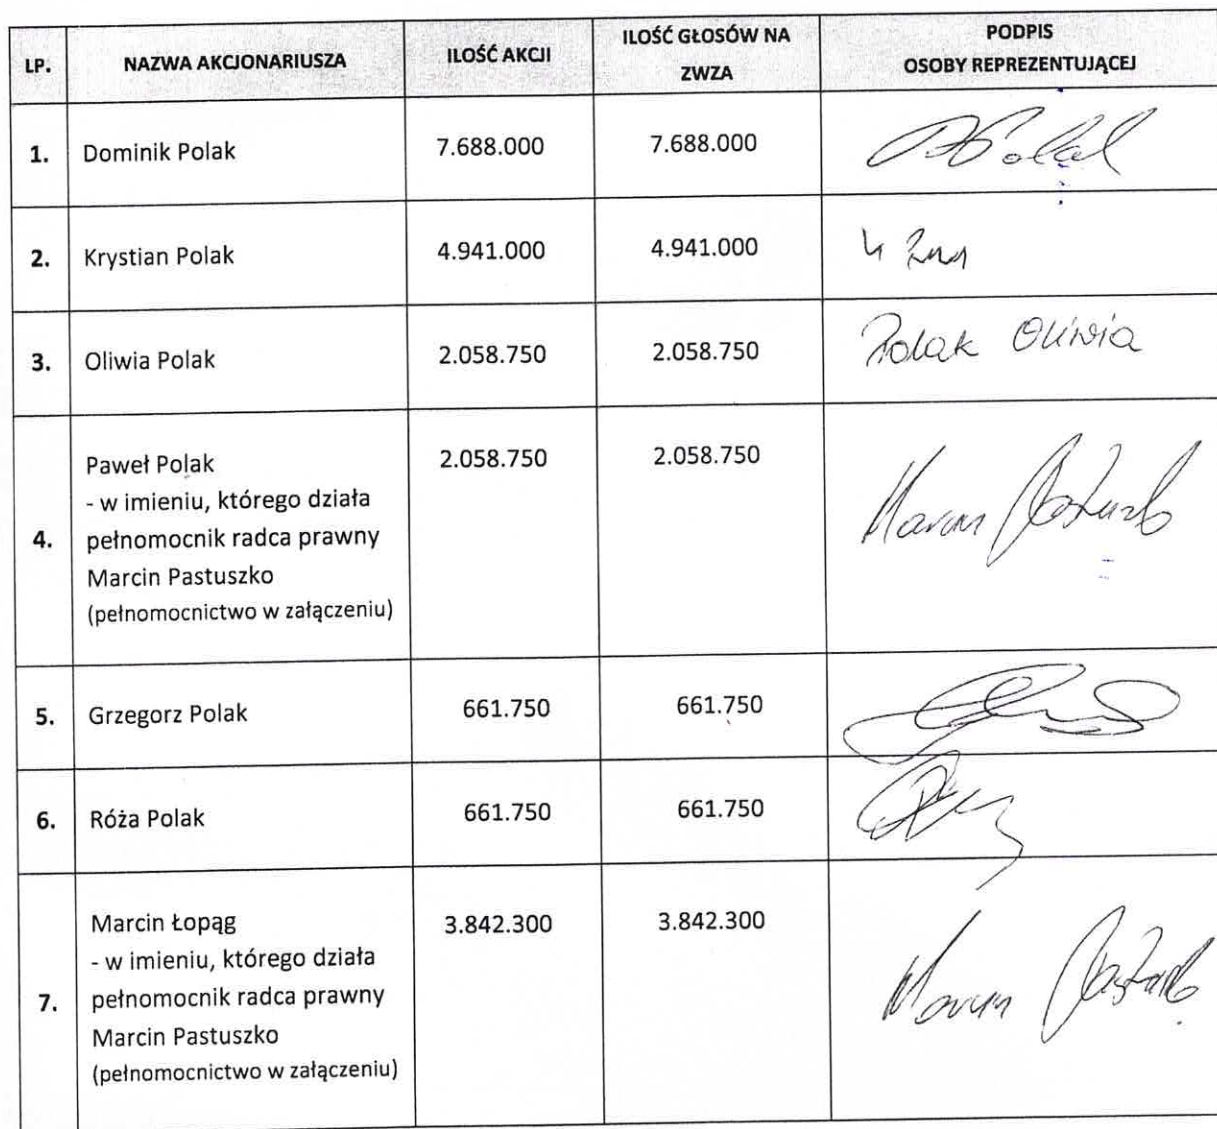 LP. NAZWA AKCJONARIUSZA ILOŚĆ AKCJI ILOŚĆ GŁOSÓW NA ZWZA PODPIS OSOBY REPREZENTUJĄCEJ
1. Dominik Polak 7.688.000 7.688.000
2. Krystian Polak 4.941.000 4.941.000
3. Oliwia Polak 2.058.750 2.058.750 Polak Oliwia
4. Paweł Polak 2.058.750 2.058.750
- w imieniu, którego działa
pełnomocnik radca prawny
Marcin Pastuszko
(pełnomocnictwo w załączeniu)
5. Grzegorz Polak 661.750 661.750
6. Róża Polak 661.750 661.750
7. Marcin Łopąg 3.842.300 3.842.300
- w imieniu, którego działa
pełnomocnik radca prawny
Marcin Pastuszko
(pełnomocnictwo w załączeniu)